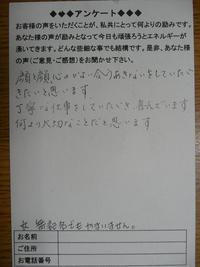 ◆◆◆アンケート◆◆◆
お客様の声をいただくことが、私共にとって何よりの励みです。
あなた様の声がみなさんとなって今日も頑張ろうとエネルギーが
湧いてきます。どんな些細な事でも結構です。是非、あなた様の
声(ご意見・ご感想)をお聞かせ下さい。
顔と顔心のかよい合うあきないをしていただ
きたいと思います
丁寧な仕事をしていただき、喜んでいます
何より大切なことだと思います
無記名でもかまいません。
お名前
ご住所
お電話番号